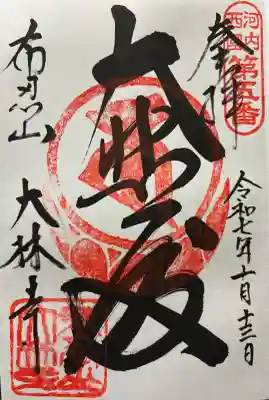 河内西國
第五番
奉拝
令和七年十月十三日
大悲殿
布忍山 大林寺